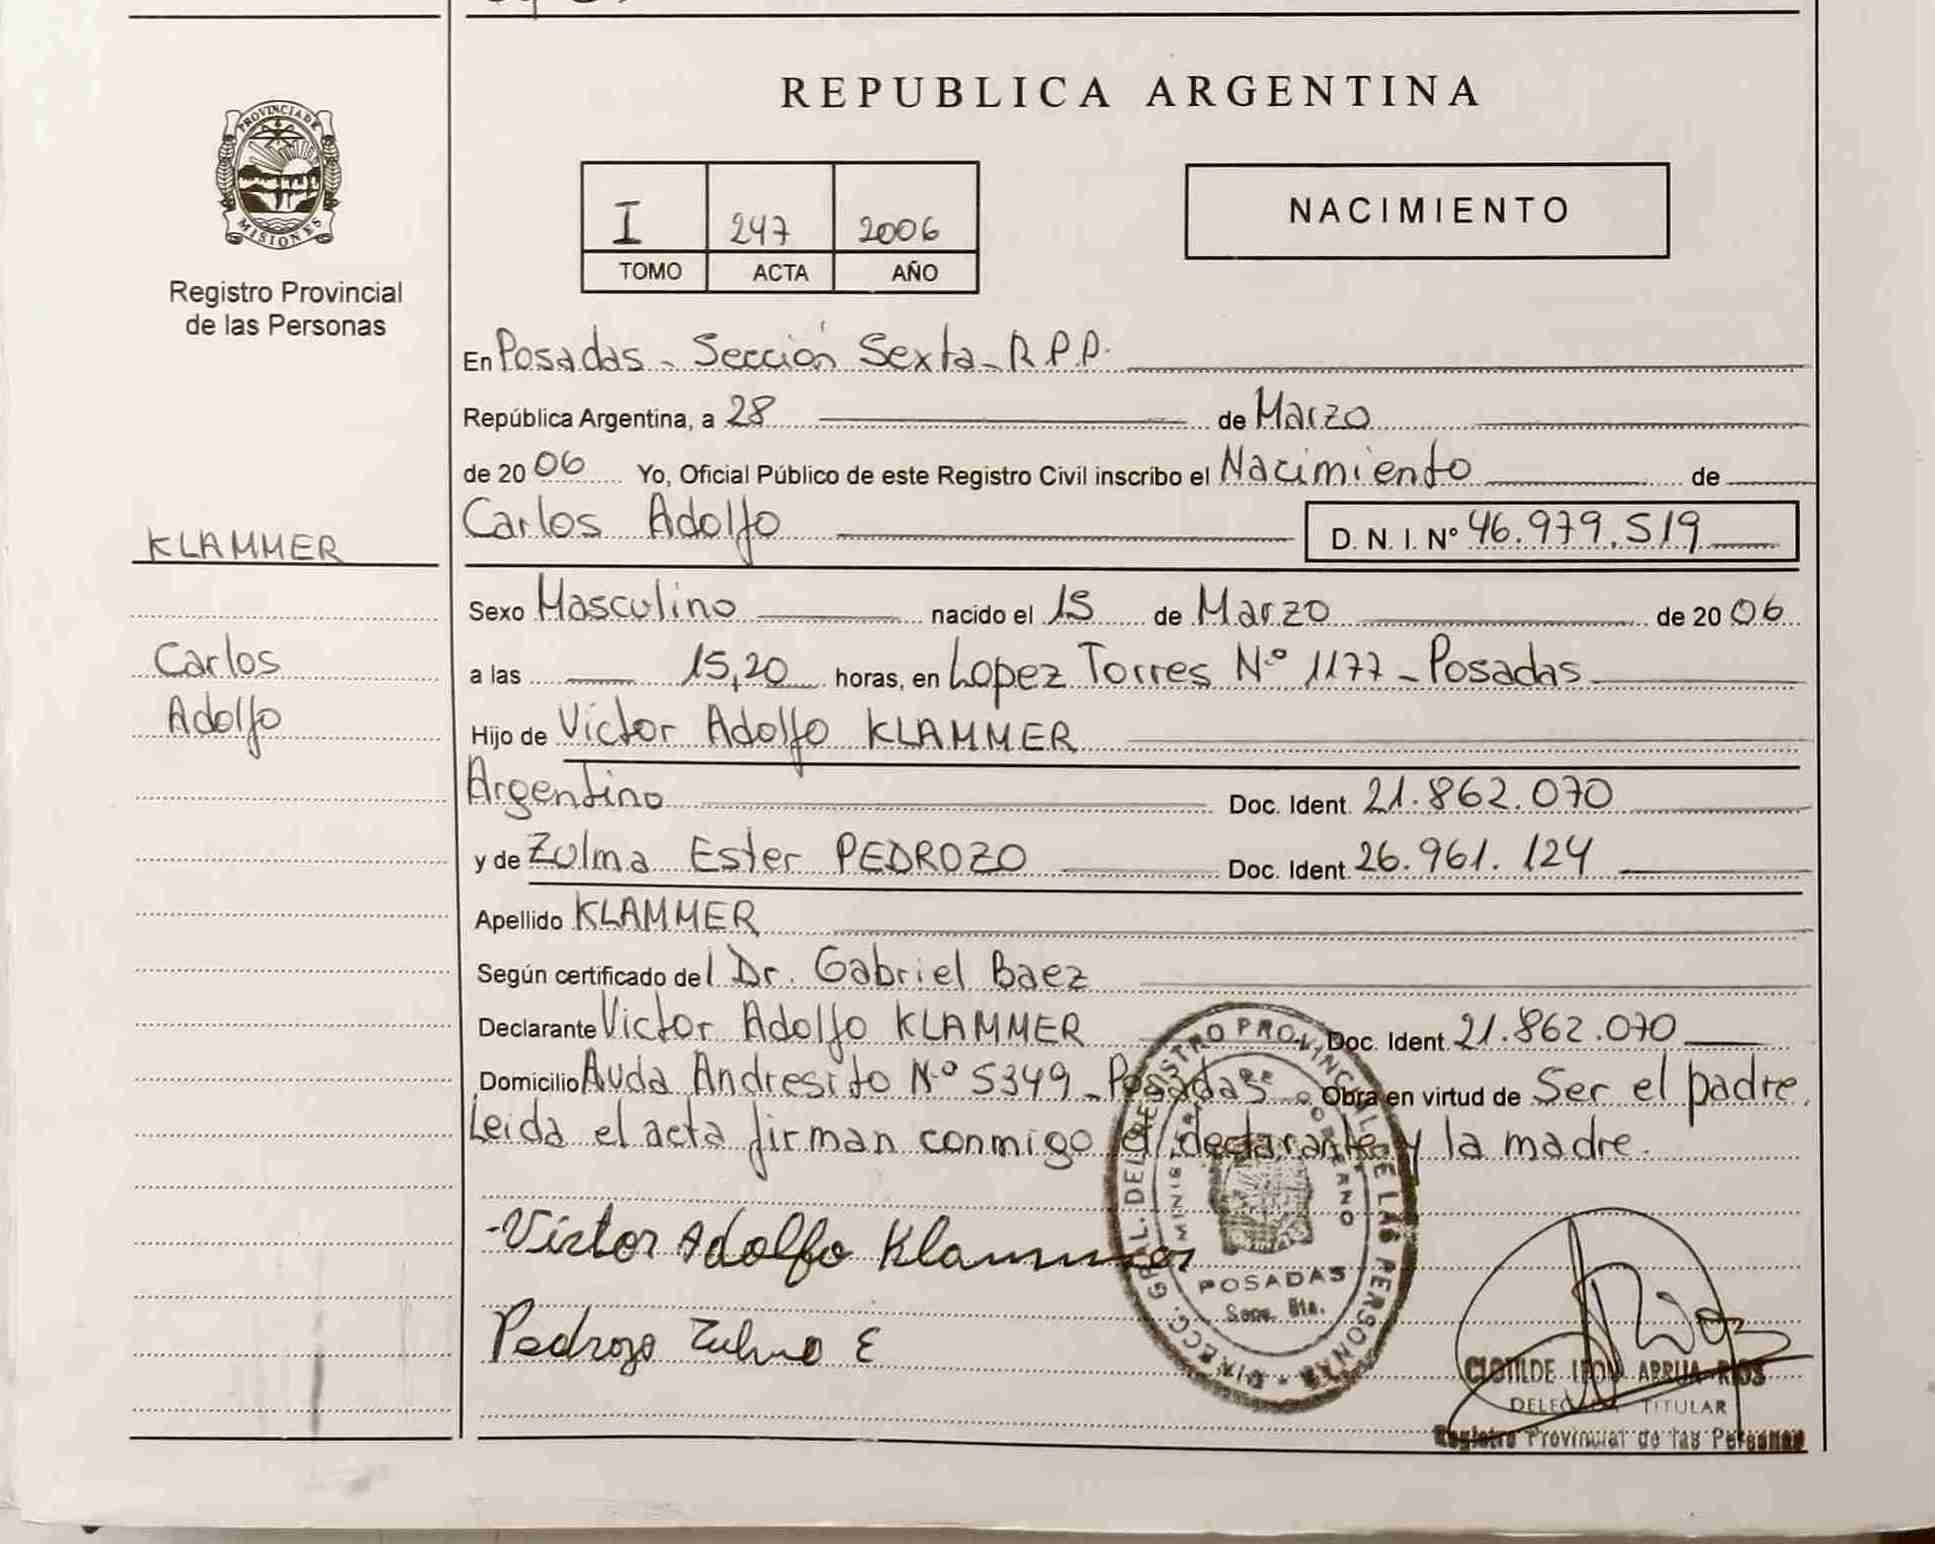 REPUBLICA ARGENTINA
PROVINCIA DE
MISIONES
Registro Provincial
de las Personas
I 247 2006
TOMO ACTA AÑO
NACIMIENTO
En Posadas - Sección Sexta - R.P.P.
República Argentina, a 28 de Marzo
de 2006 Yo, Oficial Público de este Registro Civil inscribo el Nacimiento de
KLAMMER
Carlos Adolfo D. N. I. Nº 46.979.519
Sexo Masculino nacido el 15 de Marzo de 2006
Carlos
a las 15,20 horas, en Lopez Torres Nº 1177 - Posadas
Adolfo
Hijo de Victor Adolfo KLAMMER
Argentino Doc. Ident. 21.862.070
y de Zulma Ester PEDROZO Doc. Ident. 26.961.124
Apellido KLAMMER
Según certificado del Dr. Gabriel Baez
Declarante Victor Adolfo KLAMMER Doc. Ident. 21.862.070
Domicilio Avda Andresito Nº 5349 - Posadas Obra en virtud de Ser el padre.
Leida el acta firman conmigo el declarante y la madre.
Victor Adolfo Klammer
Pedrozo Zulma E
DIRECC. GRAL. DEL REGISTRO PROVINCIAL DE LAS PERSONAS
MINISTERIO DE GOBIERNO
POSADAS
Secc. 6ta.
CLOTILDE LEON ARRUA RIOS
DELEGADA TITULAR
Registro Provincial de las Personas